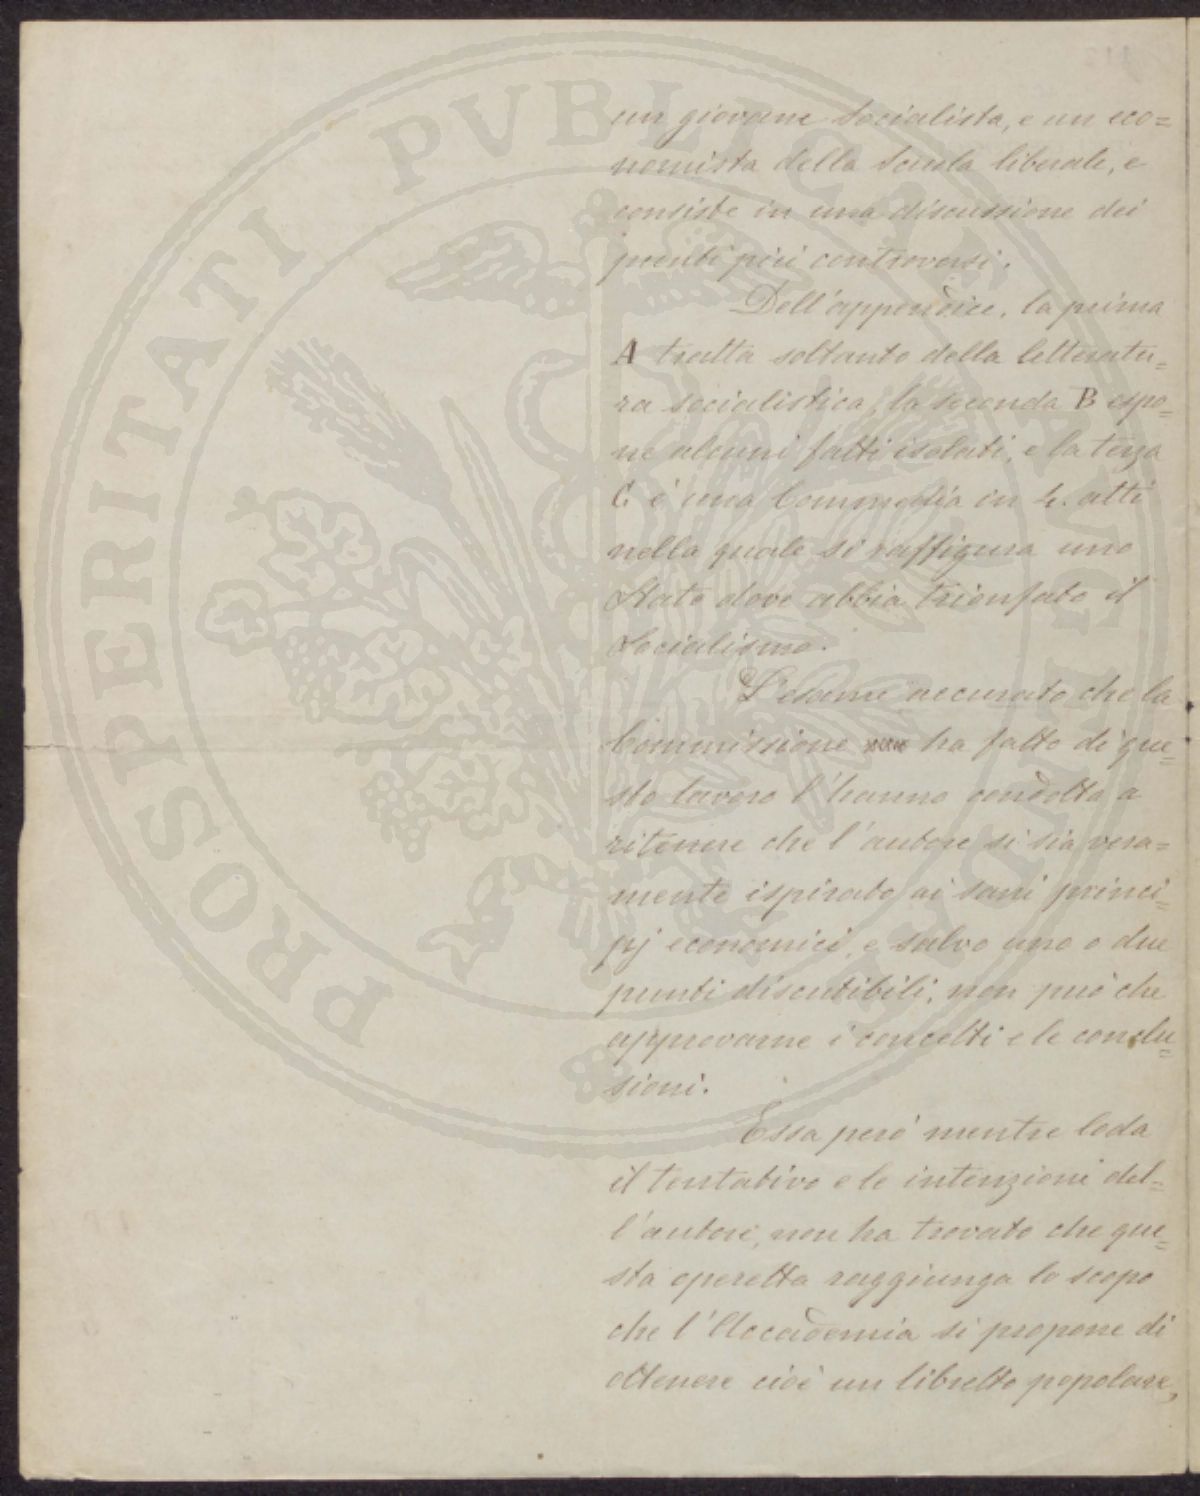 un giovane socialista, e un eco=
nomista della Scuola liberale, e
consiste in una discussione dei
punti più controversi.
Dell'appendice, la prima
A tratta soltanto della letteratu=
ra socialistica, la seconda B espo=
ne alcuni fatti isolati, e la terza
C è una Commedia in 4. atti
nella quale si raffigura uno
Stato dove abbia trionfato il
Socialismo.
L'esame accurato che la
Commissione ha fatto di que=
sto lavoro l'hanno condotta a
ritenere che l'autore si sia vera=
mente ispirato ai sani princi=
pj economici, e salvo uno o due
punti discutibili, non può che
approvarne i concetti e le conclu=
sioni.
Essa però mentre loda
il tentativo e le intenzioni del=
l'autore, non ha trovato che que=
sta operetta raggiunga lo scopo
che l'Accademia si propone di
ottenere cioè un libretto popolare,
PROSPERITATI PVBLICAE